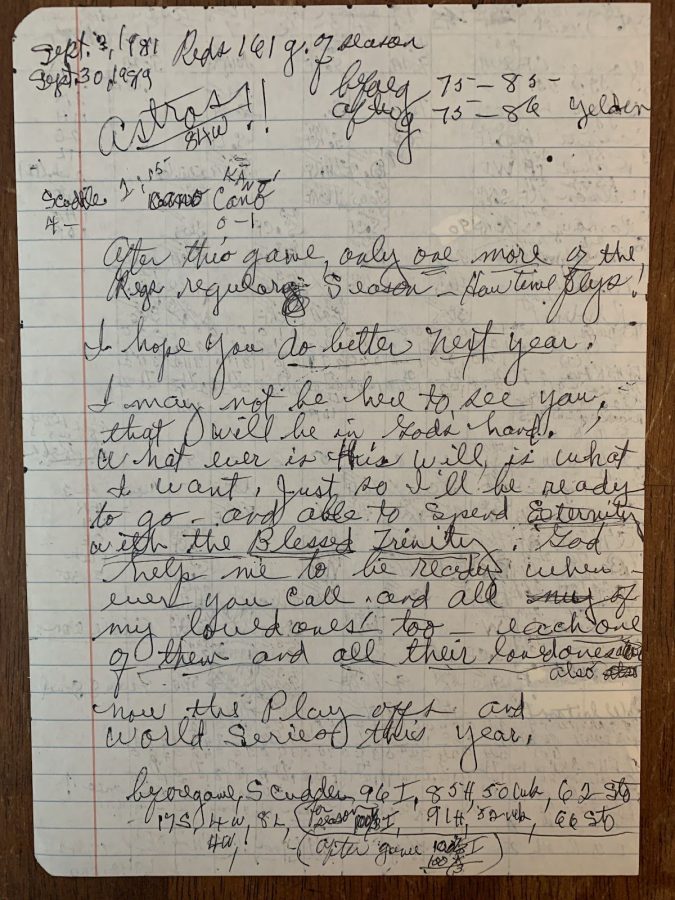 Sept. 3, 1981 Reds 161 g. of season
Sept 30, 1989
before g 75-85-
after g 75-86 yelden
Astros!!
84W
Scudde 1: 15- KANO!
Cano
4- 0-1
After this game, only one more of the
Regs regular Season - How time flys!
I hope you do better next year.
I may not be here to see you,
that will be in Gods hand.
What ever is this will, is what
I want, just so I'll be ready
to go - and able to spend Eternity
with the Blessed Trinity. God
help me to be ready when-
ever you call and all of
my loved ones too - each one
of them and all their lovedones
also
now the Play offs and
World Series this year,
before game, Scudder 96 I, 85 H, 50 wk, 62 Sto
175, 4W, 8L, for season 100⅔ I, 91 H, 52 wk, 66 Sto
4W,
(after game 100⅔ I
100⅓